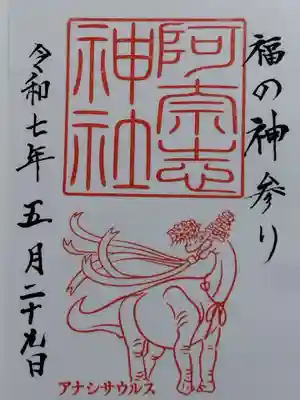 福の神参り
阿宗志神社
令和七年五月二十九日
アナシサウルス